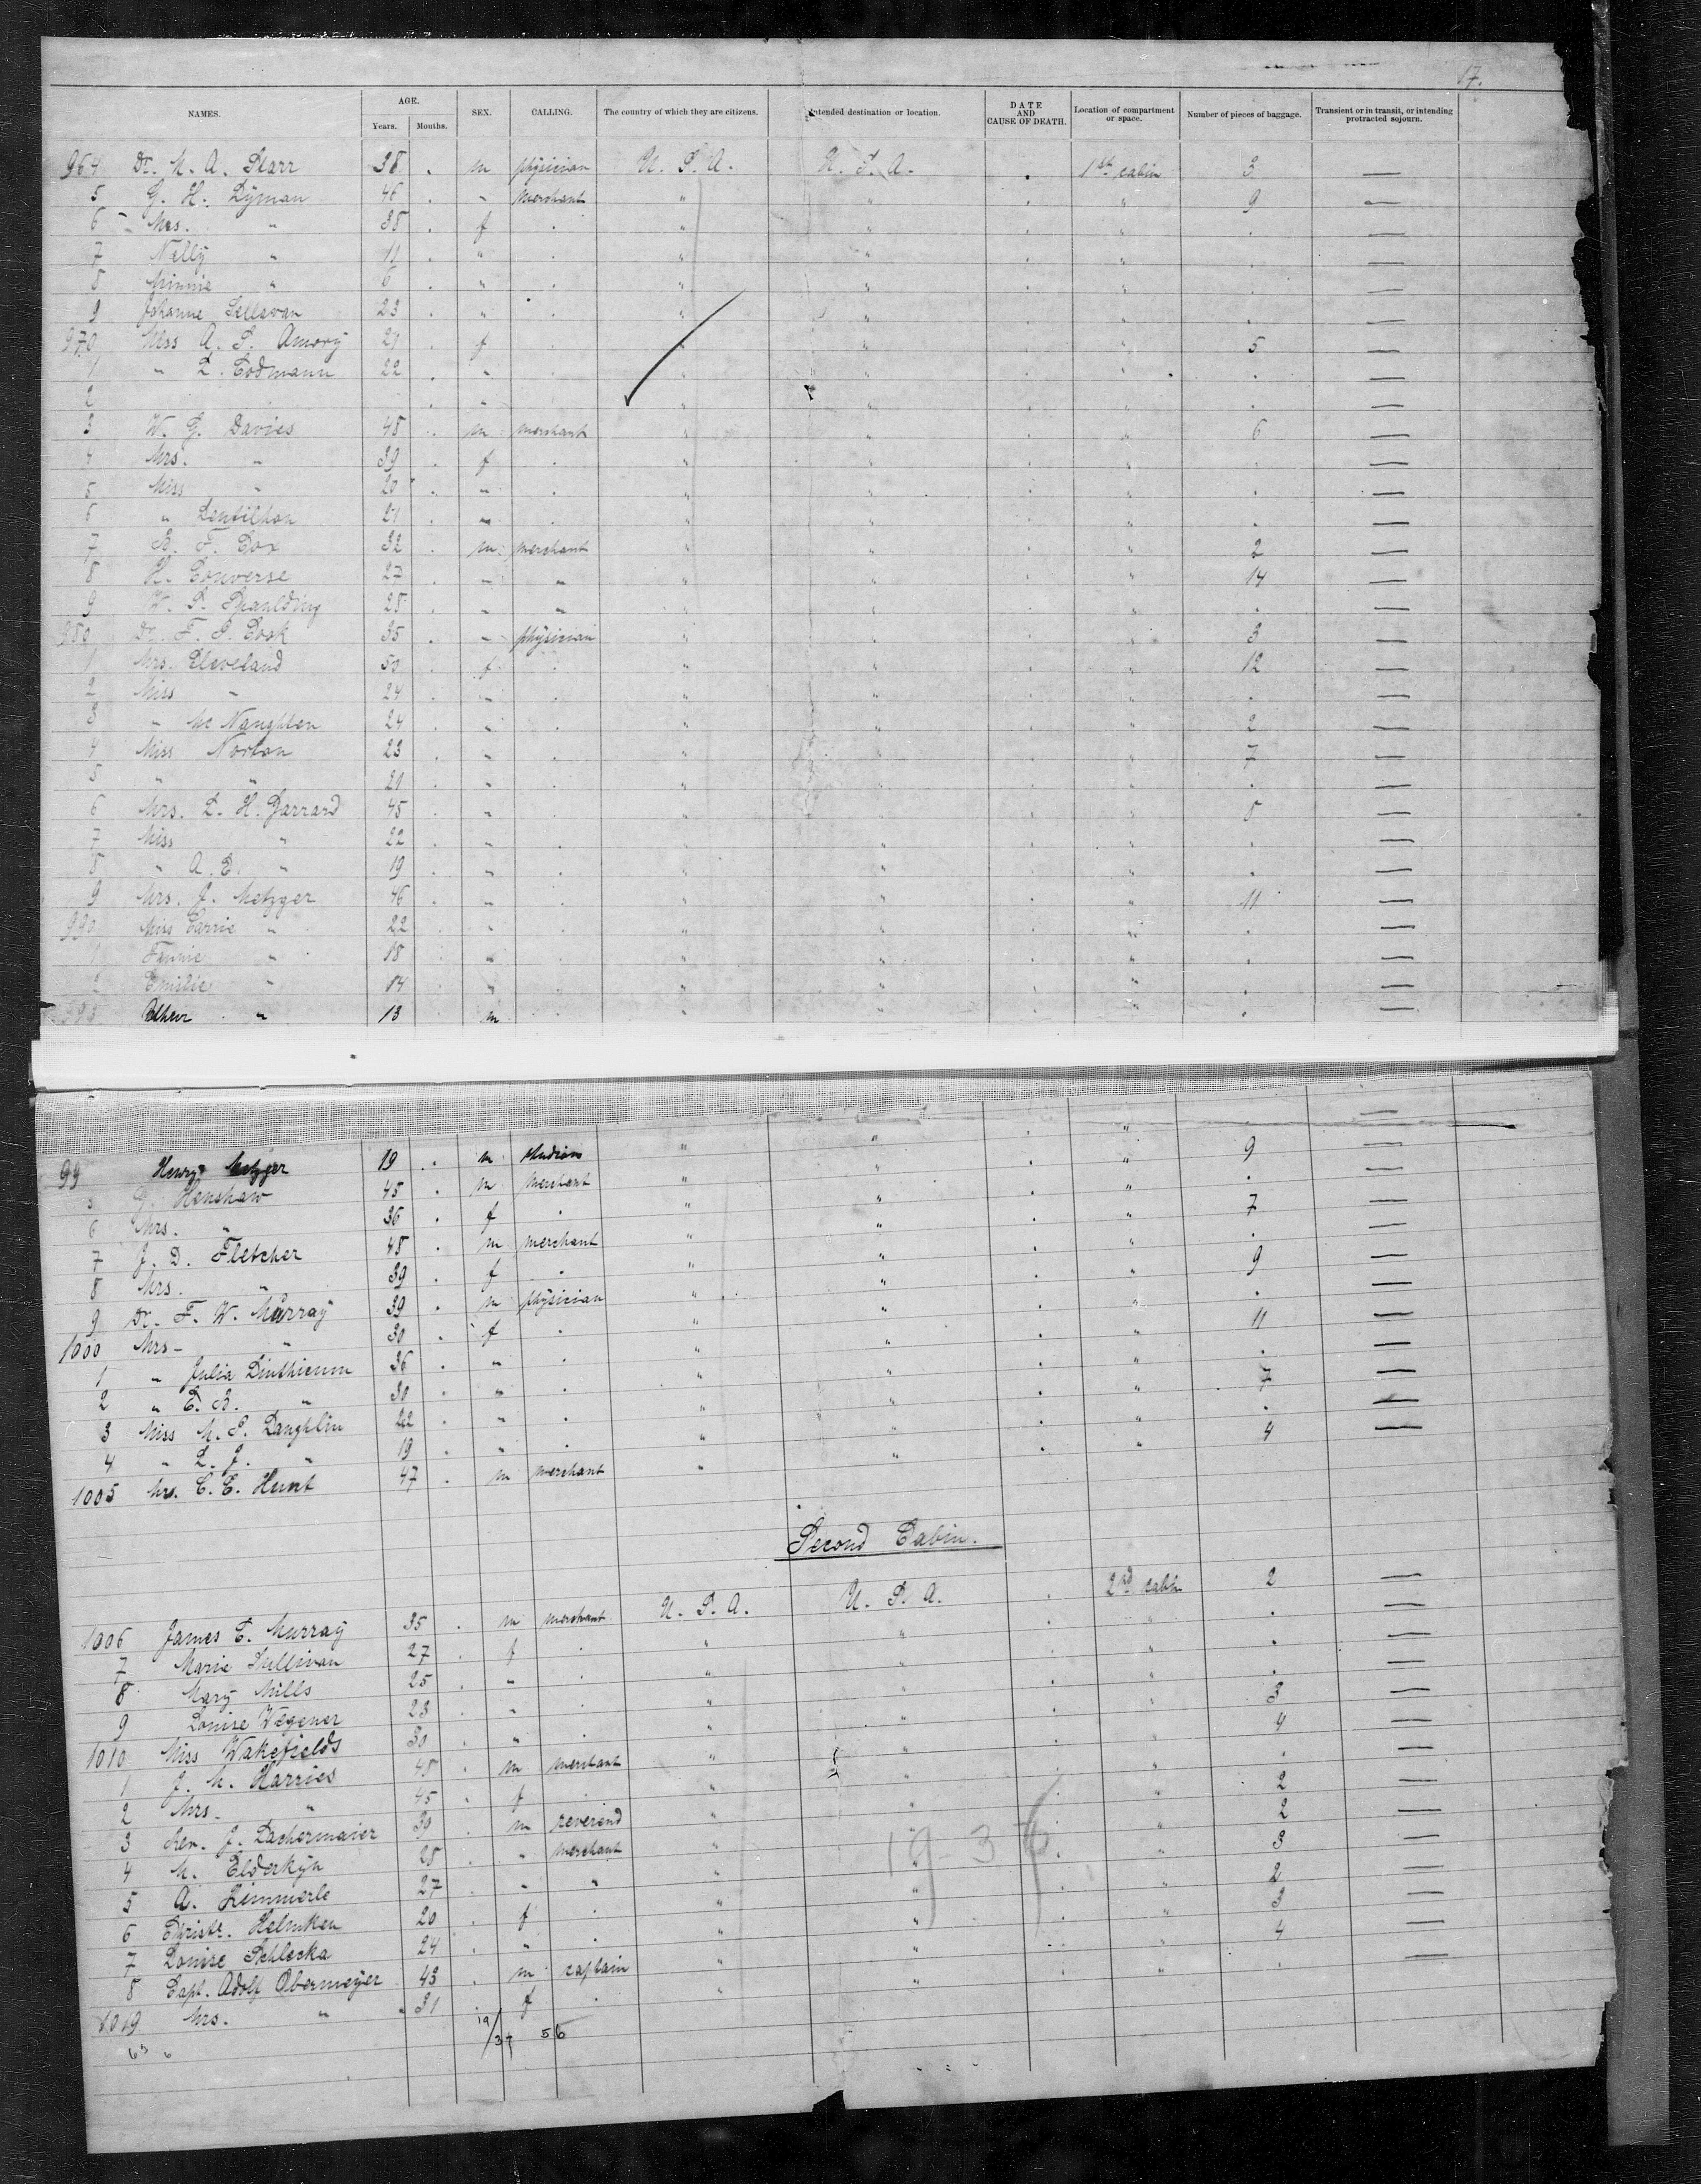 17.
NAMES. AGE. Years. Months. SEX. CALLING. The country of which they are citizens. Intended destination or location. DATE AND CAUSE OF DEATH. Location of compartment or space. Number of pieces of baggage. Transient or in transit, or intending protracted sojourn.
964 Dr. M. A. Starr 38 . m physician U. S. A. U. S. A. . 1st cabin 3 —
5 G. H. Lyman 46 . " merchant " " . " 9 —
6 Mrs. " 38 . f . " " . " . —
7 Nelly " 11 . " . " " . " . —
8 Minnie " 6 . " . " " . " . —
9 Johanne 23 . " . " " . " . —
970 Miss A. S. Amory 21 . f . " " . " 5 —
1 " L. Codmann 22 . " . " " . " . —
2 . " " " . —
3 W. G. Davies 48 . m merchant " " . " 6 —
4 Mrs. " 39 . f . " " . " . —
5 Miss " 20 . " . " " . " . —
6 " Lentilhon 21 . " . " " . " . —
7 F. Cox 32 . m merchant " " . " 2 —
8 H. Converse 27 . " " " " . " 14 —
9 W. S. Spaulding 28 . " " " " . " . —
980 Dr. F. S. Cook 35 . " physician " " . " 3 —
1 Mrs. Cleveland 50 . f . " " . " 12 —
2 Miss " 24 . " . " " . " . —
3 " Mc Naughten 24 . " . " " . " 2 —
4 Miss Norton 23 . " . " " . " 7 —
5 " " 21 . " . " " . " . —
6 Mrs. L. H. Garrard 45 . " . " " . " 8 —
7 Miss " 22 . " . " " . " . —
8 " A. E. " 19 . " . " " . " . —
9 Mrs. J. Metzger 46 . " . " " . " 11 —
990 Miss Carrie " 22 . " . " " . " . —
1 Fannie " 18 . " . " " . " . —
2 Emilie " 14 . " . " " . " . —
993 " 13 m . " " . " . —
99 Henry Metzger 19 . m " " . " . —
5 Henshaw 45 . m merchant " " . " 9 —
6 Mrs. " 36 . f . " " . " . —
7 J. D. Fletcher 48 . m merchant " " . " 7 —
8 Mrs. " 39 . f . " " . " . —
9 Dr. F. W. Murray 39 . m physician " " . " 9 —
1000 Mrs. " 30 . f . " " . " . —
1 " Julia Linthicum 36 . " . " " . " 11 —
2 " E. B. " 30 . " . " " . " . —
3 Miss M. S. Laughlin 22 . " . " " . " 7 —
4 " L. J. " 19 . " . " " . " . —
1005 Mrs. C. E. Hunt 47 . m merchant " " . " 4 —
Second Cabin.
1006 James E. Murray 35 . m merchant U. S. A. U. S. A. . 2nd cabin 2 —
7 Marie Sullivan 27 . f . " " . " . —
8 Mary Mills 25 . " . " " . " . —
9 Louise Wegener 23 . " . " " . " . —
1010 Miss Wakefields 30 . " . " " . " 3 —
1 J. M. Harries 48 . m merchant " " . " 4 —
2 Mrs. " 45 . f . " " . " . —
3 Rev. J. Lachermaier 30 . m reverend " " . " 2 —
4 M. Elderkyn 28 . " merchant " " . " 2 —
5 A. Kimmerle 27 . " " " " . " 3 —
6 Christe. Helmken 20 . f . " " . " 2 —
7 Louise Schlecka 24 . " . " " . " 3 —
8 Capt. Adolf Obermeyer 43 . m captain " " . " 4 —
1019 Mrs. " 31 . f . " " . " . —
19/37 56
19-36